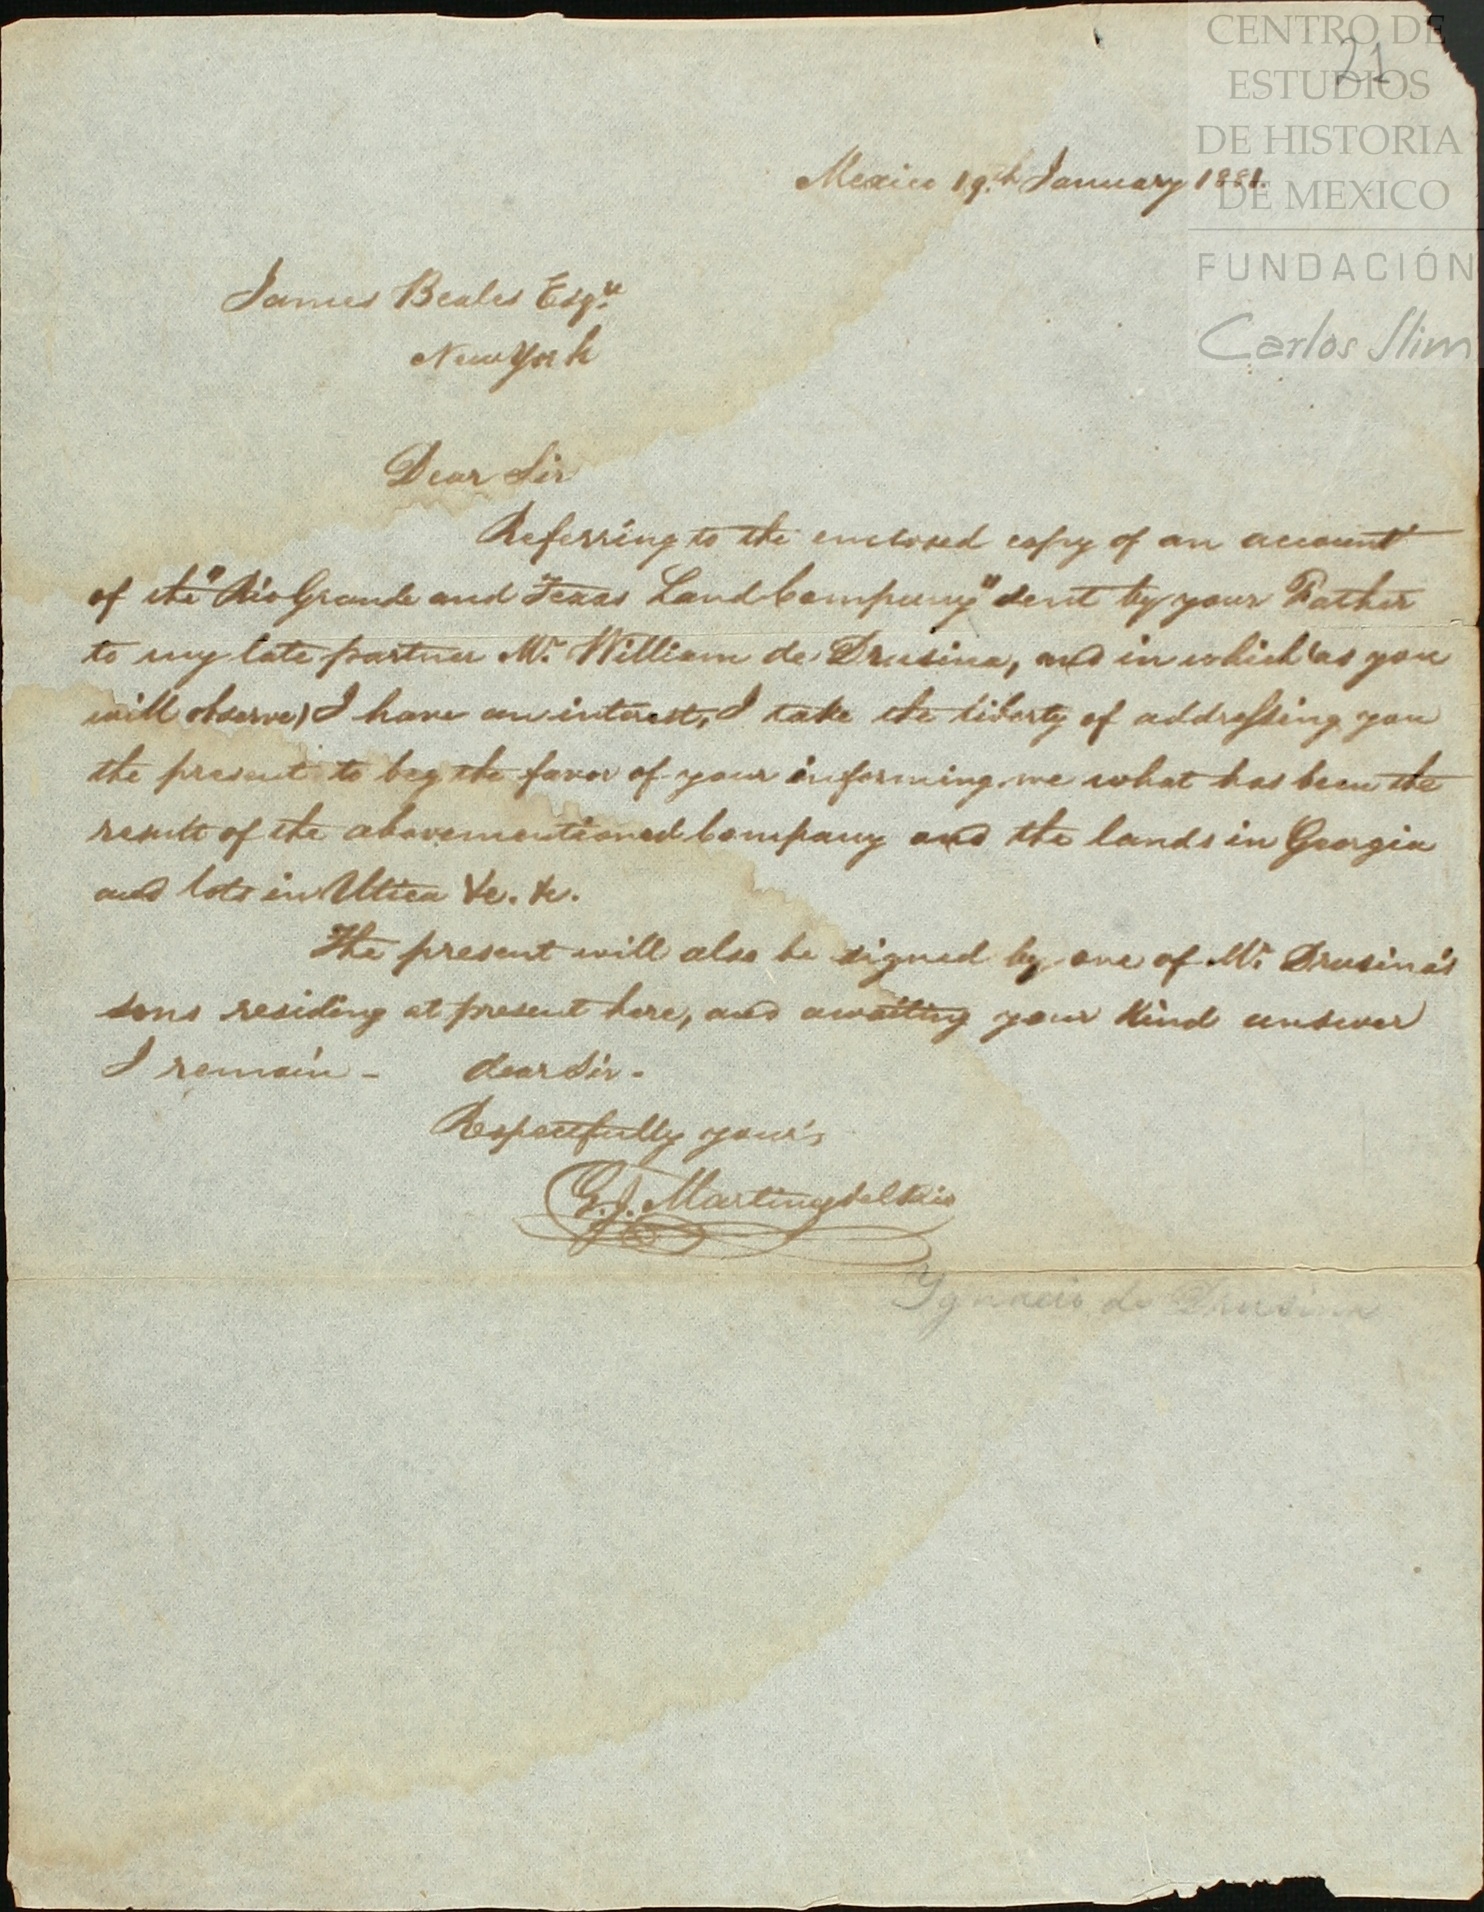 CENTRO DE
21
ESTUDIOS
DE HISTORIA
DE MEXICO
FUNDACIÓN
Carlos Slim
Mexico 19th January 1881.
James Beales Esqre
New York
Dear Sir
Referring to the enclosed copy of an account
of the "Rio Grande and Texas Land Company" sent by your Father
to my late partner Mr. William de Drusina, and in which (as you
will observe) I have an interest, I take the liberty of addressing you
the present to beg the favor of your informing me what has been the
result of the abovementioned Company and the lands in Georgia
and lots in Utica &c. &c.
The present will also be signed by one of Mr. Drusina's
sons residing at present here, and awaiting your kind answer
I remain - dear Sir -
Respectfully your's,
G. J. Martinez del Rio
Ygnacio de Drusina